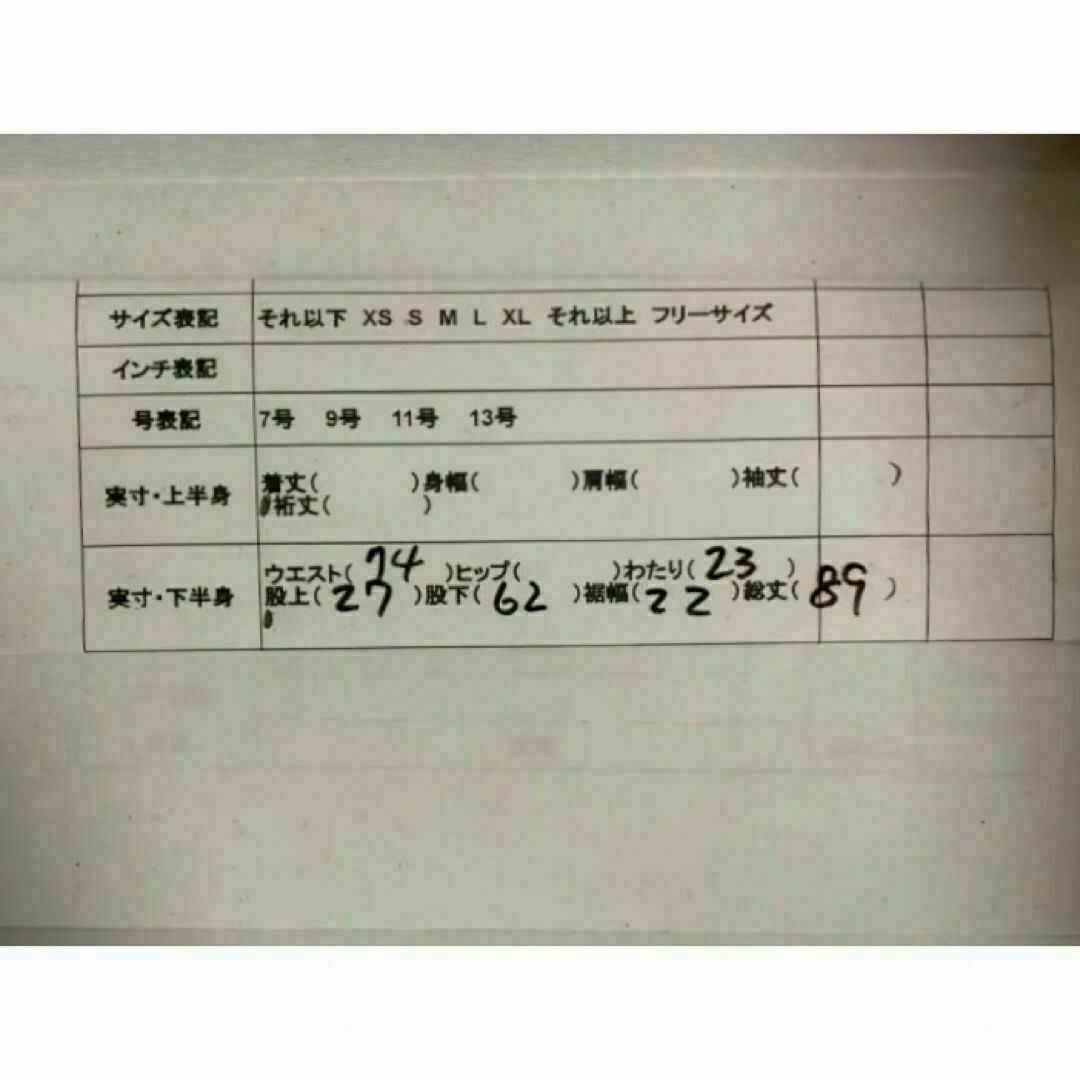 サイズ表記 それ以下 XS S M L XL それ以上 フリーサイズ
インチ表記
号表記 7号 9号 11号 13号
実寸・上半身 着丈( )身幅( )肩幅( )袖丈( )
裄丈( )
実寸・下半身 ウエスト( 74 )ヒップ( )わたり( 23 )
股上( 27 )股下( 62 )裾幅( 22 )総丈( 89 )